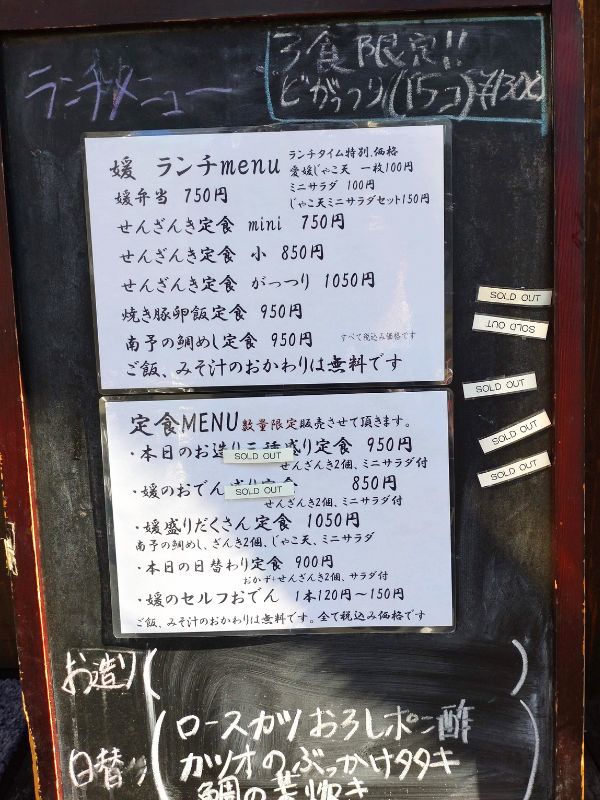 ランチメニュー
3食限定!!
ビがっつり(15コ)¥1300
媛 ランチmenu
ランチタイム特別価格
愛媛じゃこ天 一枚100円
ミニサラダ 100円
じゃこ天ミニサラダセット150円
媛弁当 750円
せんざんき定食 mini 750円
せんざんき定食 小 850円
せんざんき定食 がっつり 1050円
焼き豚卵飯定食 950円
南予の鯛めし定食 950円
すべて税込み価格です
ご飯、みそ汁のおかわりは無料です
SOLD OUT
SOLD OUT
SOLD OUT
SOLD OUT
SOLD OUT
定食MENU 数量限定販売させて頂きます。
・本日のお造り三種盛り定食 950円
SOLD OUT
せんざんき2個、ミニサラダ付
・媛のおでん盛り定食 850円
SOLD OUT
せんざんき2個、ミニサラダ付
・媛盛りだくさん定食 1050円
南予の鯛めし、ざんき2個、じゃこ天、ミニサラダ
・本日の日替わり定食 900円
おかず+せんざんき2個、サラダ付
・媛のセルフおでん 1本120円〜150円
ご飯、みそ汁のおかわりは無料です。全て税込み価格です
お造り( )
日替り(ロースカツおろしポン酢
カツオのぶっかけタタキ
鯛の煮炊き